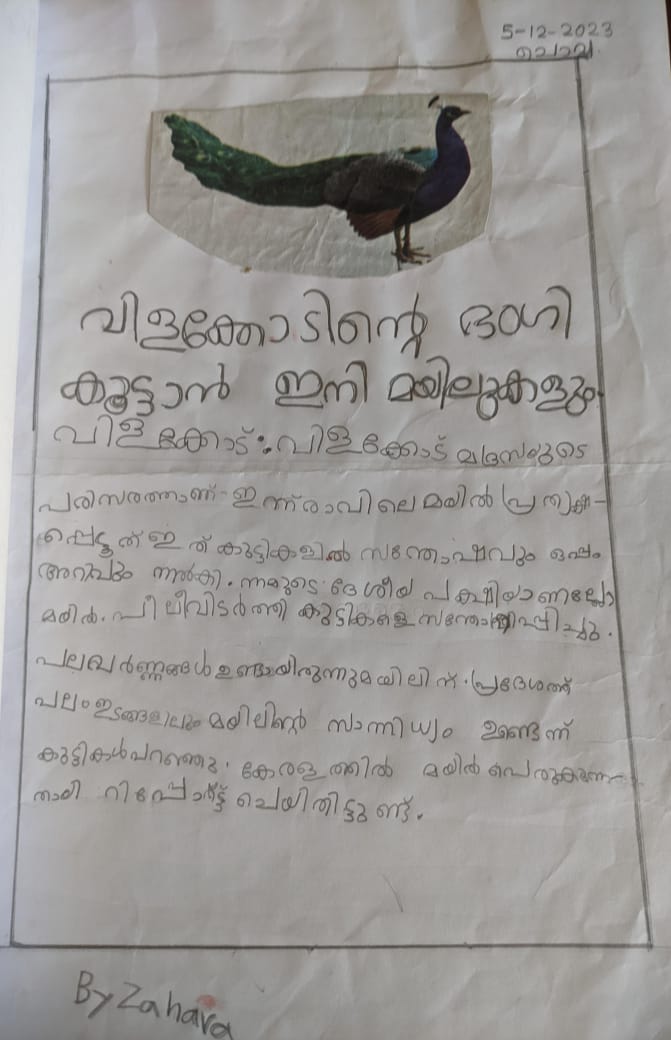 5-12-2023
ചൊവ്വ.
വിളക്കോടിന്റെ ഭംഗി
കൂട്ടാൻ ഇനി മയിലുകളും
വിളക്കോട്:വിളക്കോട് മദ്രസയുടെ
പരിസരത്താണ് ഇന്ന് രാവിലെ മയിൽ പ്രത്യക്ഷ-
പ്പെട്ടത് ഇത് കുട്ടികളിൽ സന്തോഷവും ഒപ്പം
അറിവും നൽകി. നമ്മുടെ ദേശീയ പക്ഷിയാണല്ലോ
മയിൽ. പീലിവിടർത്തി കുട്ടികളെ സന്തോഷിപ്പിച്ചു.
പലവർണ്ണങ്ങൾ ഉണ്ടായിരുന്നു മയിലിന്. പ്രദേശത്ത്
പലം ഇടങ്ങളിലും മയിലിന്റെ സാന്നിധ്യം ഉണ്ടെന്ന്
കുട്ടികൾ പറഞ്ഞു. കേരളത്തിൽ മയിൽ പെരുകുന്ന-
തായി റിപ്പോർട്ട് ചെയിതിട്ടുണ്ട്.
By Zahara